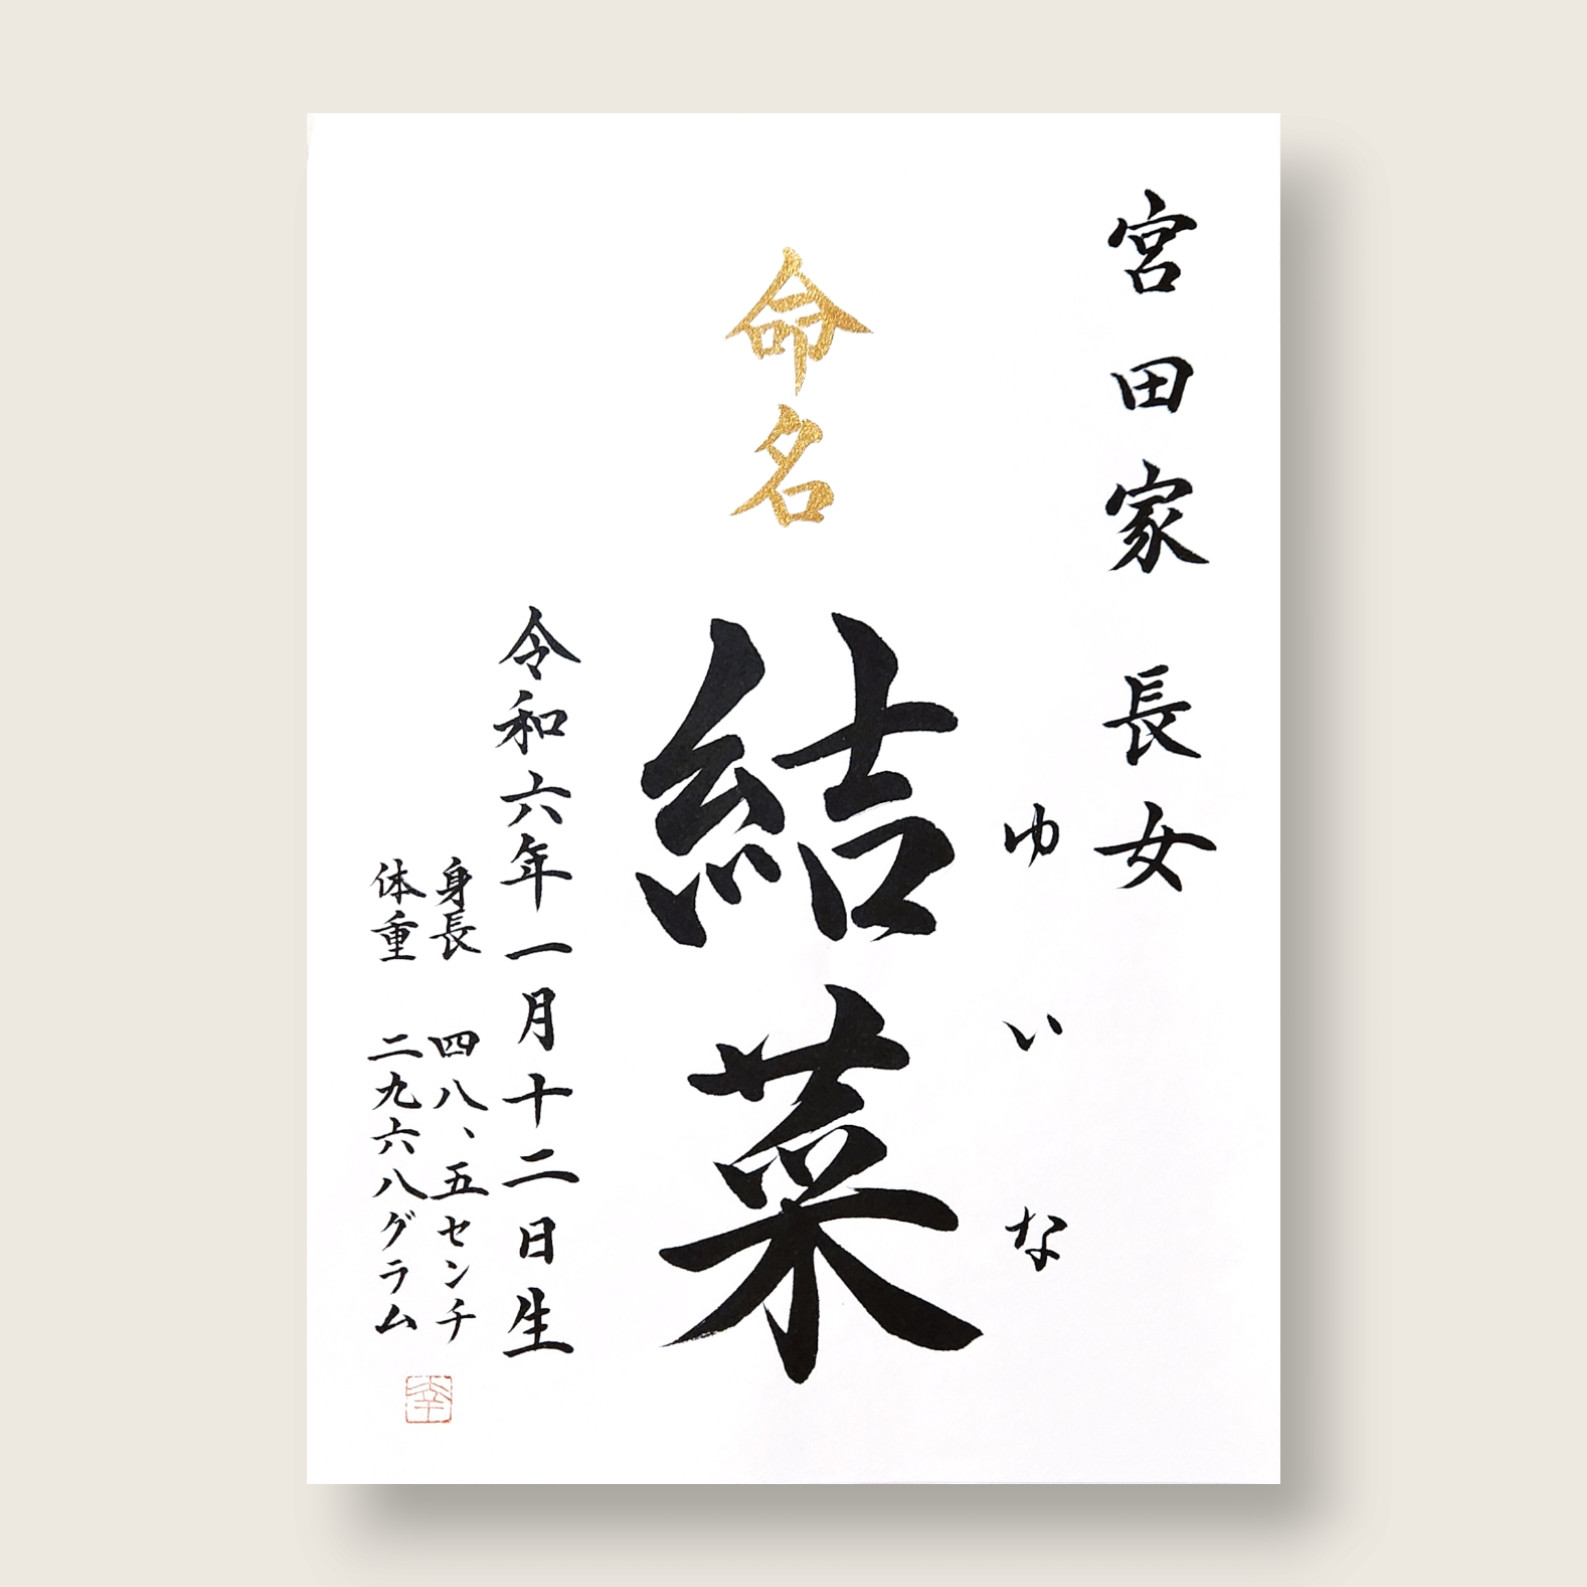 宮田家 長女
ゆいな
命名
結菜
令和六年一月十二日生
身長 四八、五センチ
体重 二九六八グラム